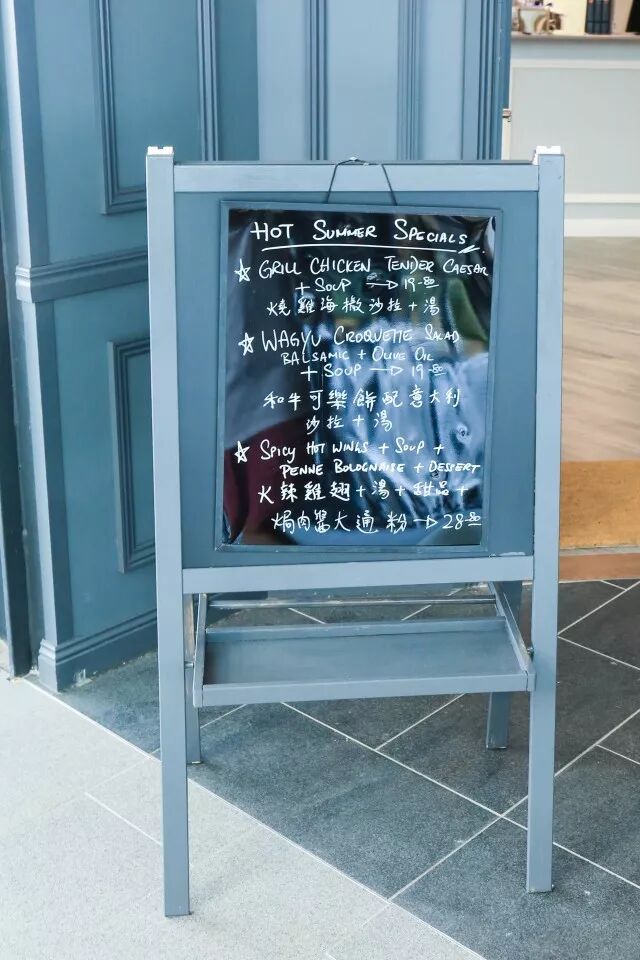 HOT SUMMER SPECIALS
☆ GRILL CHICKEN TENDER CAESAR
+ SOUP → 19.80
燒雞海撒沙拉 + 湯
☆ WAGYU CROQUETTE SALAD
BALSAMIC + OLIVE OIL
+ SOUP → 19.80
和牛可樂餅配意大利
沙拉 + 湯
☆ SPICY HOT WINGS + SOUP +
PENNE BOLOGNAISE + DESSERT
火辣雞翅 + 湯 + 甜品 +
焗肉醬大通粉 → 28.80